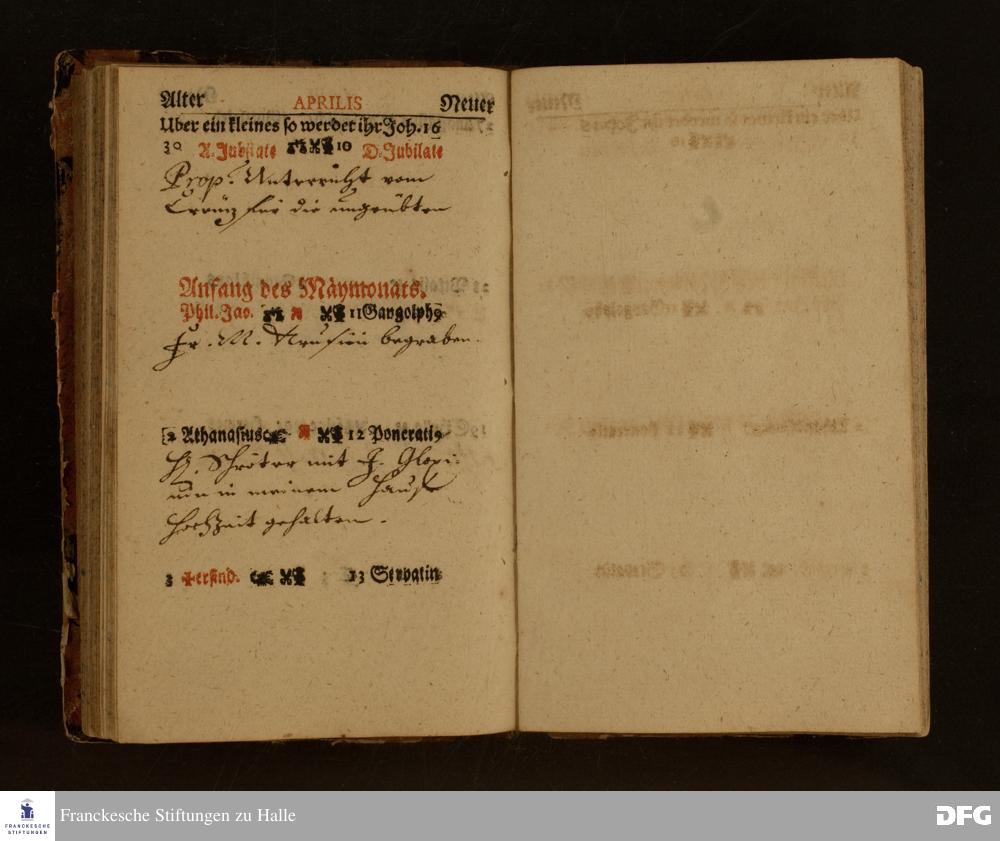 Alter APRILIS Neuer
Uber ein kleines so werdet ihr Joh. 16
30 A. Jubilate 10 D. Jubilate
Prop. Unterricht vom
Creutz für die ungeübten
Anfang des Mäymonats.
Phil. Jac. 11 Gangolph9
Fr. M. begraben.
2 Athanasius 12 Poncrati9
H. Schröter mit J.
in meinem Hause
Hochzeit gehalten.
3 ✝ erfind. 13 Servatius
Franckesche Stiftungen zu Halle
FRANCKESCHE
STIFTUNGEN
DFG